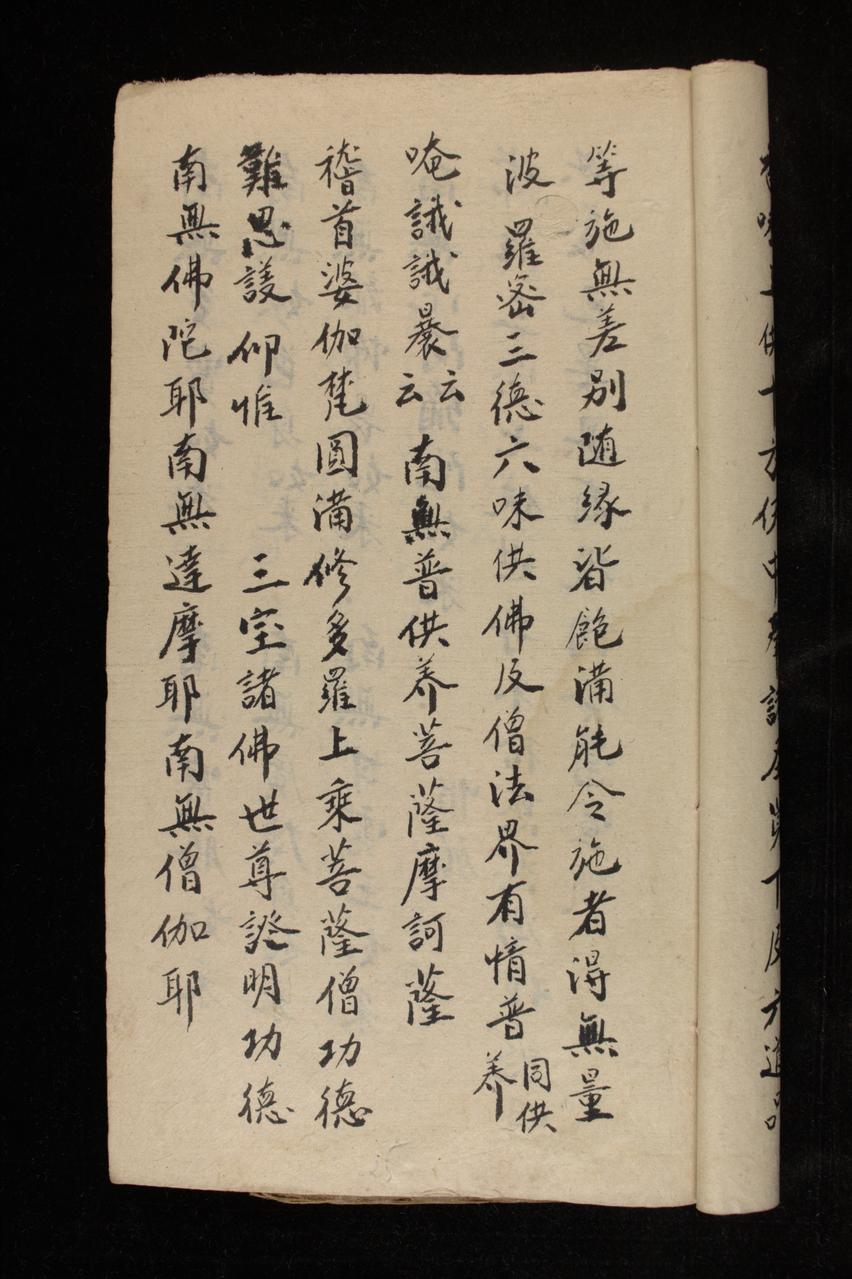 等施無差别随縁皆飽滿能令施者得無量
波羅密三德六味供佛及僧法界有情普同供養
唵誐誐曩云云南無普供养菩薩摩訶薩
稽首婆伽梵圓滿修多羅上乘菩薩僧功德
難思議仰惟三宝諸佛世尊證明功德
南無佛陀耶南無達摩耶南無僧伽耶